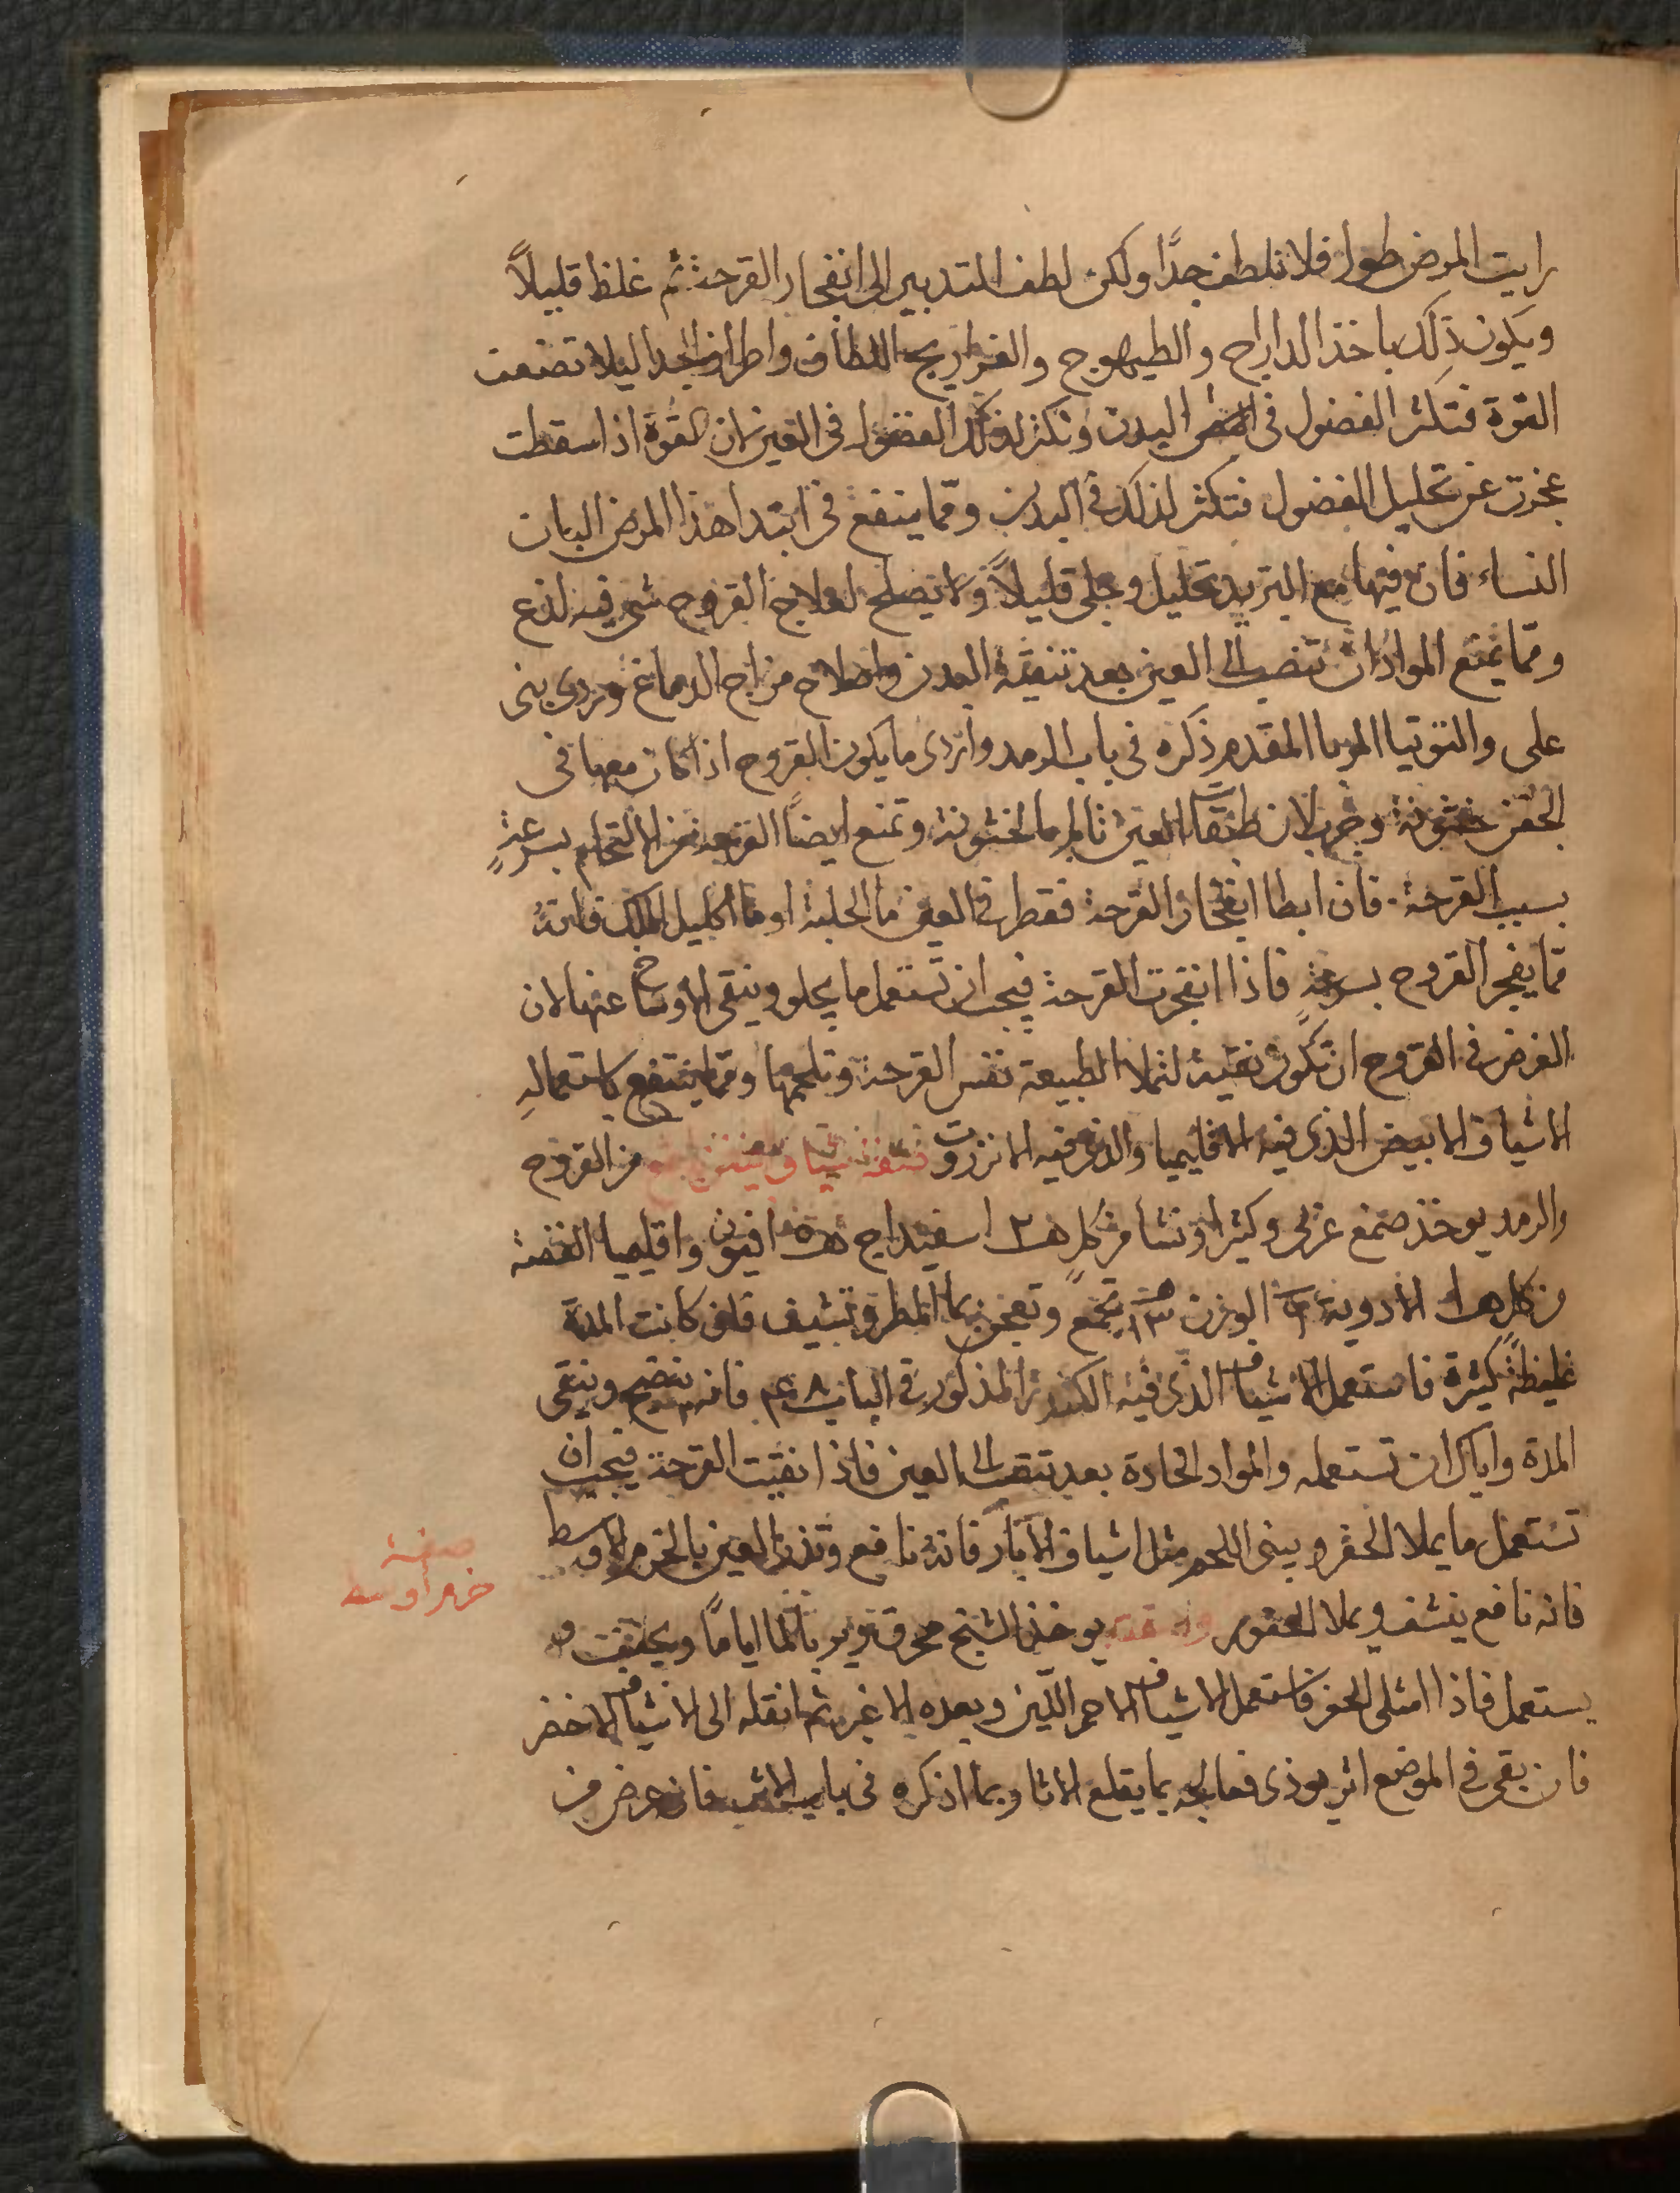 رايت المرض طول فلا تلطف جدًا ولكن لطف التدبير الى انفجار القرحة ثم غلظ قليلاً
ويكون ذلك باخذ الدراج والطيهوج والفراريج اللطاف واطراف الجدا ليلا تضعف
القوة فتكثر الفضول في البدن وتكثر لذلك الفضول في العين لان القوة اذا سقطت
عجزت عن تحليل الفضول فتكثر لذلك في البدن ومما ينفع في ابتدا هذا المرض البان
النساء فان فيها مع التبريد تحليل وجلى قليلاً ولا يصلح لعلاج القروح شى فيه لذع
ومما يمنع المواد ان تنصب الى العين بعد تنقية البدن واصلاح مزاج الدماغ
على والتوتيا المقدم ذكره في باب الرمد واردى ما يكون القروح اذا كان معها في
الجفن خشونة وجرب لان طبقات العين تالم بالخشونة وتمنع ايضاً القرحة من الالتحام بسرعةٍ
بسبب القرحة. فان ابطا انفجار القرحة فقطر في العين ما الحلبة او ما اكليل الملك فانهُ
مما يفجر القروح بسرعةٍ فاذا انفجرت القرحة فيجب ان تستعمل ما يجلو وينقي الاوساخ عنها لان
الغرض في القروح ان تكون نقية لتملا الطبيعة نفس القرحة وتلحمها ومما ينتفع باستعمالهِ
الاشياف الابيض الذي فيه الاقليميا والذي فيه الانزروت شياف من القروح
والرمد يوخذ صمغ عربي وكثيرا ونشا من كل اسفيداج افيون واقليميا الفضة
من كل الادوية الوزن تجمع وتعجن بما المطر وتشيف فان كانت المدة
غليظةً كثيرة فاستعمل الاشياف الذي فيه الكندر المذكور في الباب فانه ينضج وينقي
المدة واياك ان تستعمله والمواد الحادة بعد تنصب الى العين فاذا نقيت القرحة فيجب ان
تستعمل ما يملا الحفر ويبني اللحم مثل اشياف الابار فانهُ نافع وتذر العين بالخرم الاوسط
فانه نافع ينشف ويملا الحفور وصفته يوخذ الشنج محرق يربى بالما ايامًا ويجفف و
يستعمل فاذا امتلى الحفر فاستعمل الاشياف الاحمر اللين وبعده الاغبر ثم انقله الى الاشياف الاخضر
فان بقي في الموضع اثر يوذى فعالجه بما يقلع الاثار بما اذكره في باب الاثر فان عرض من
صفة
خرم اوسط